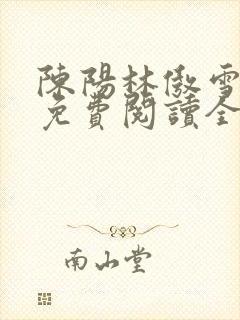 陳陽林傲雪
免費閱讀全
南山堂